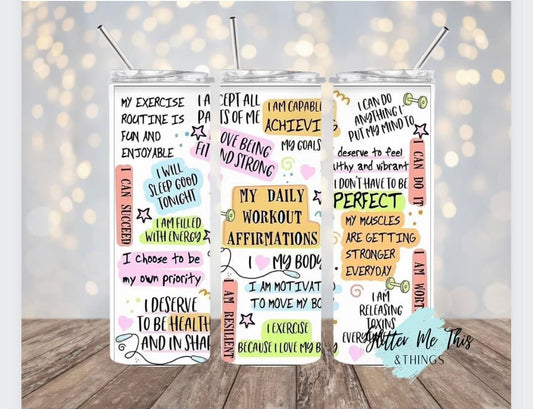 MY EXERCISE
ROUTINE IS
FUN AND
ENJOYABLE
I WILL
SLEEP GOOD
TONIGHT
I CAN SUCCEED
I AM FILLED
WITH ENERGY
I choose to be
my own priority
I DESERVE
TO BE HEALTH
AND IN SHAP
I A
PA
FIT
CEPT ALL
TS OF ME
I AM CAPABL
ACHIEVING
MY GOALS
OVE BEING
ND STRONG
MY DAILY
WORKOUT
AFFIRMATIONS
I MY BODY
I AM MOTIVAT
TO MOVE MY BO
I AM RESILIENT
I EXERCISE
BECAUSE I LOVE MY B
I CAN DO
ANYTHING I
PUT MY MIND TO
deserve to feel
lthy and vibrant
I DON'T HAVE TO BE
PERFECT
I CAN DO IT
MY MUSCLES
ARE GETTING
STRONGER
EVERYDAY
I AM WORT
I AM
RELEASING
TOXINS
EVERY
Glitter Me This
& THINGS